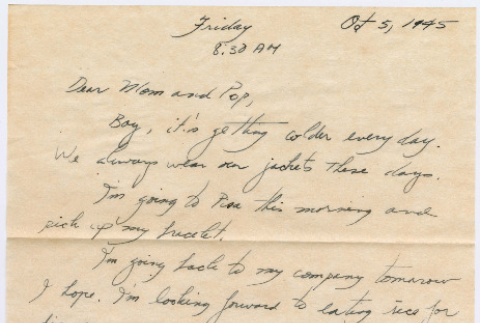 Friday Oct 5, 1945
8:30 AM
Dear Mom and Pop,
Boy, it's getting colder every day.
We always wear our jackets these days.
I'm going to Pisa this morning and
pick up my bracelet.
I'm going back to my company tomarow
I hope. I'm looking forward to eating rice for